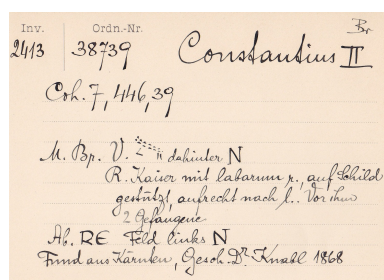 Br
Inv. Ordn.-Nr.
2413 38739 Constantius II
Coh. 7, 446, 39
M. Br. V. dahinter N
R. Kaiser mit labarum r., auf Schild
gestützt, aufrecht nach l.. Vor ihm
2 Gefangene
Ab. RE Feld links N
Fund aus Kärnten, Gesch. Dr. Knabl 1868